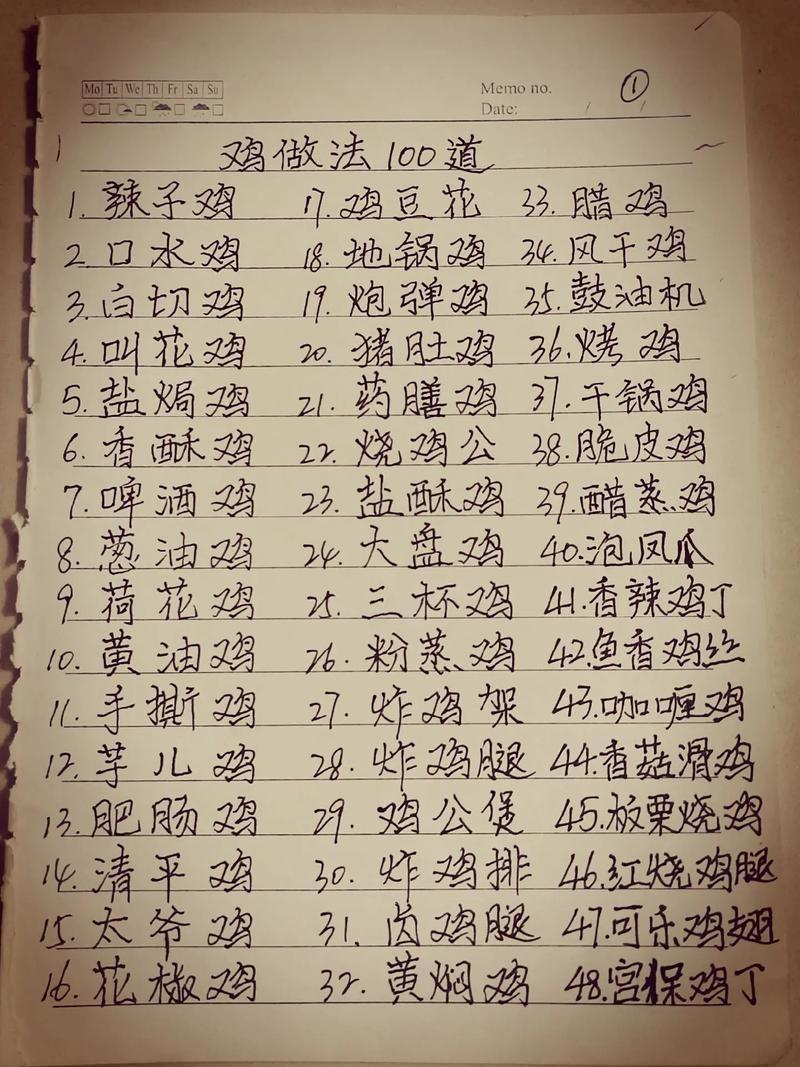 Mo Tu We Th Fr Sa Su
Memo no. ①
Date: / /
鸡做法100道
1. 辣子鸡 17. 鸡豆花 33. 腊鸡
2. 口水鸡 18. 地锅鸡 34. 风干鸡
3. 白切鸡 19. 炮弹鸡 35. 鼓油机
4. 叫花鸡 20. 猪肚鸡 36. 烤鸡
5. 盐焗鸡 21. 药膳鸡 37. 干锅鸡
6. 香酥鸡 22. 烧鸡公 38. 脆皮鸡
7. 啤酒鸡 23. 盐酥鸡 39. 醋蒸鸡
8. 葱油鸡 24. 大盘鸡 40. 泡凤爪
9. 荷花鸡 25. 三杯鸡 41. 香辣鸡丁
10. 黄油鸡 26. 粉蒸鸡 42. 鱼香鸡丝
11. 手撕鸡 27. 炸鸡架 43. 咖喱鸡
12. 芋儿鸡 28. 炸鸡腿 44. 香菇滑鸡
13. 肥肠鸡 29. 鸡公煲 45. 板栗烧鸡
14. 清平鸡 30. 炸鸡排 46. 红烧鸡腿
15. 太爷鸡 31. 卤鸡腿 47. 可乐鸡翅
16. 花椒鸡 32. 黄焖鸡 48. 宫保鸡丁